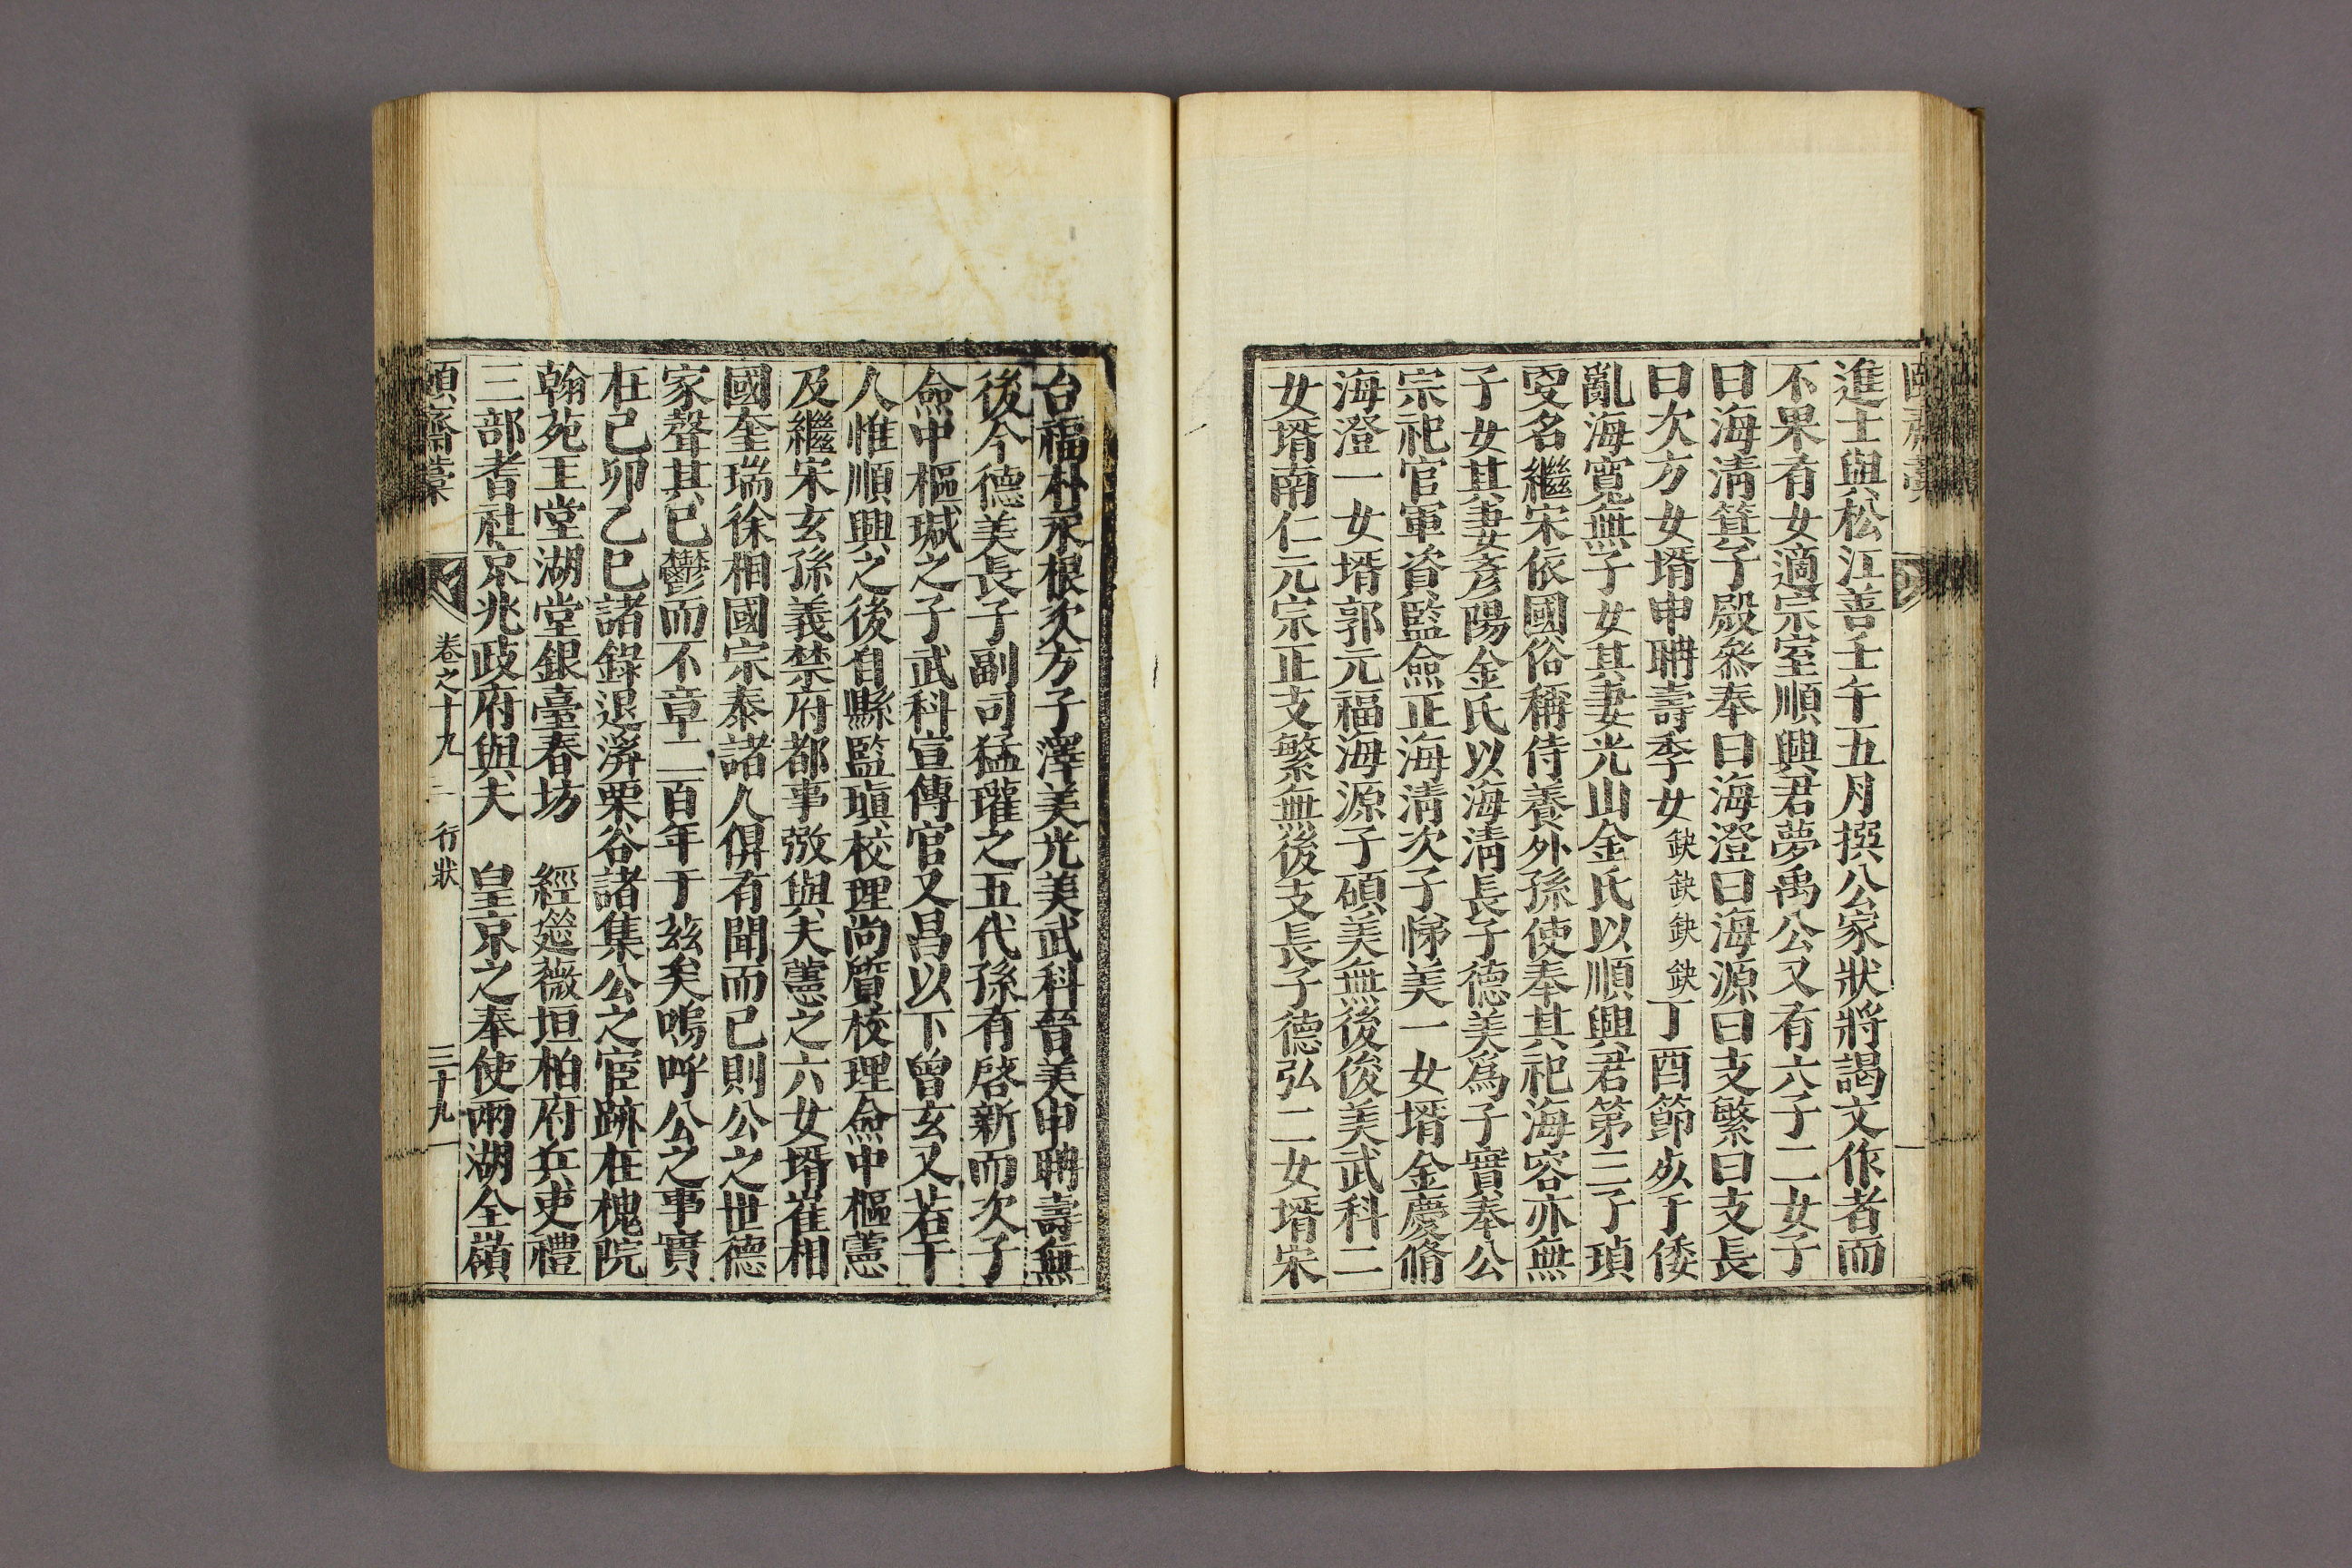 進士與松江善壬午五月撰公家狀將謁文作者而
不果有女適宗室順興君夢禹公又有六子二女子
曰海淸箕子殿叅奉曰海澄曰海源曰支繁曰支長
曰次方女壻申聃壽季女缺缺缺缺丁酉節死于倭
亂海寬無子女其妻光山金氏以順興君第三子瑱
受名繼宋依國俗稱侍養外孫使奉其祀海容亦無
子女其妻彥陽金氏以海淸長子德美爲子實奉公
宗祀官軍資監僉正海淸次子悌美一女壻金慶脩
海澄一女壻郭元福海源子碩美無後俊美武科二
女壻南仁元宗正支繁無後支長子德弘二女壻宋
台福朴承根次方子澤美光美武科晉美申聃壽無
後今德美長子副司猛瓘之五代孫有啓新而次子
僉中樞瑊之子武科宣傳官又昌以下曾玄又若干
人惟順興之後自縣監瑱校理尙質校理僉中樞藼
及繼宋玄孫義禁府都事㢸與夫藼之六女壻崔相
國奎瑞徐相國宗泰諸人俱有聞而已則公之世德
家聲其已鬱而不章二百年于玆矣嗚呼公之事實
在己卯乙巳諸錄退溪栗谷諸集公之宦跡在槐院
翰苑玉堂湖堂銀臺春坊 經筵薇垣柏府兵吏禮
三部耆社京兆政府與夫 皇京之奉使兩湖全嶺
頤齋藁 卷之十九 行狀 三十九